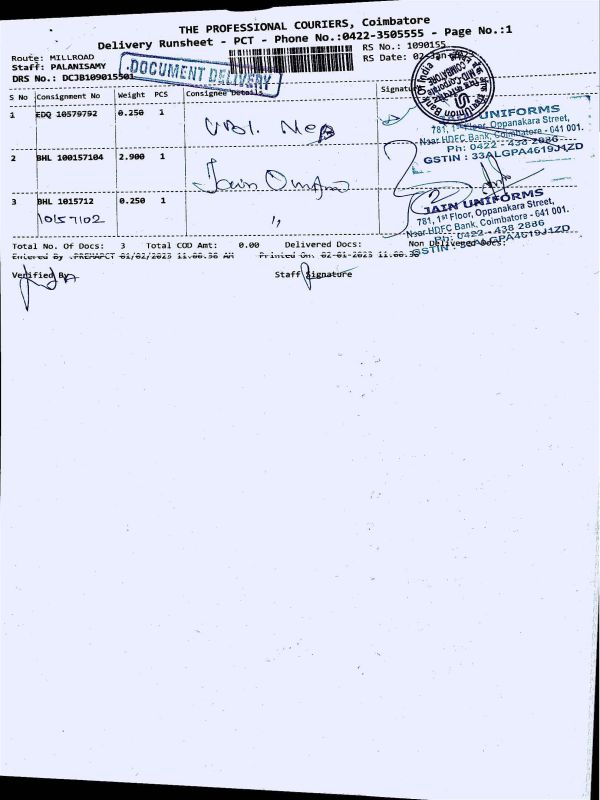 THE PROFESSIONAL COURIERS, Coimbatore
Delivery Runsheet - PCT - Phone No.:0422-3505555 - Page No.:1
Route: MILLROAD
RS No.: 1090155
Staff: PALANISAMY
DOCUMENT DELIVERY
RS Date: 02-Jan
DRS No.: DC3B109015501
S No Consignment No Weight PCS Consignee Details Signature
1 EDQ 10579792 0.250 1
UNIFORMS
781, 1st Floor, Oppanakara Street,
Near HDFC Bank, Coimbatore - 641 001.
Ph: 0422 - 438 2886
GSTIN : 33ALGPA4619J1ZD
2 BHL 100157104 2.900 1 Jain
3 BHL 1015712 0.250 1
10157102 "
JAIN UNIFORMS
781, 1st Floor, Oppanakara Street,
Near HDFC Bank, Coimbatore - 641 001.
Ph: 0422 - 438 2886
Total No. Of Docs: 3 Total COD Amt: 0.00 Delivered Docs: Non Delivered Docs:
Entered By .PREMAPCT 01/02/2023 11.00.36 AM Printed On: 02-01-2023 11.00.38
Verified By Staff Signature